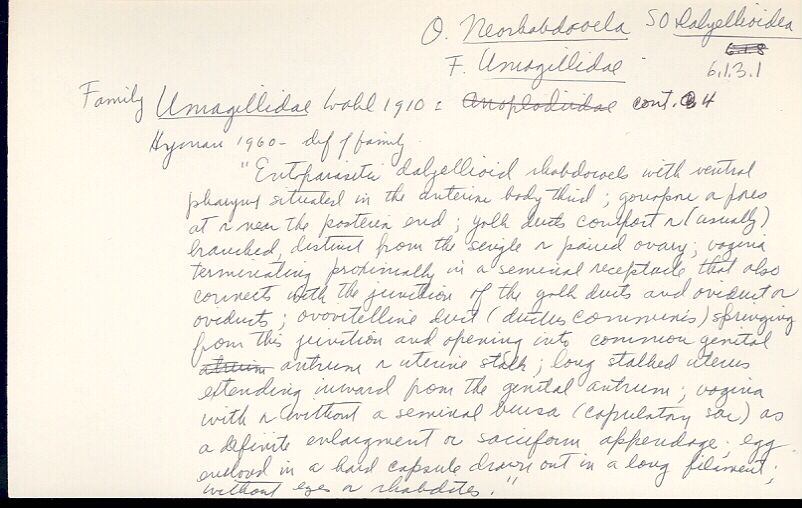 O. Neorhabdocoela SO Dalyellioidea
F. Umagillidae 6.1.8
6.1.3.1
Family Umagillidae Wahl 1910 = Anoplodiidae cont. 4
Hyman 1960 - def of family
"Entoparasitic dalyellioid rhabdocoels with ventral
pharynx situated in the anterior body third; gonopore or pores
at or near the posterior end; yolk ducts compact or (usually)
branched, distinct from the single or paired ovary; vagina
terminating proximally in a seminal receptacle that also
connects with the junction of the yolk ducts and oviduct or
oviducts; ovovitelline duct (ductus communis) springing
from this junction and opening into common genital
atrium antrum or uterine stalk; long stalked uterus
extending inward from the genital antrum; vagina
with or without a seminal bursa (copulatory sac) as
a definite enlargment or sacciform appendage; egg
enclosed in a hard capsule drawn out in a long filament;
without eyes or rhabdites."